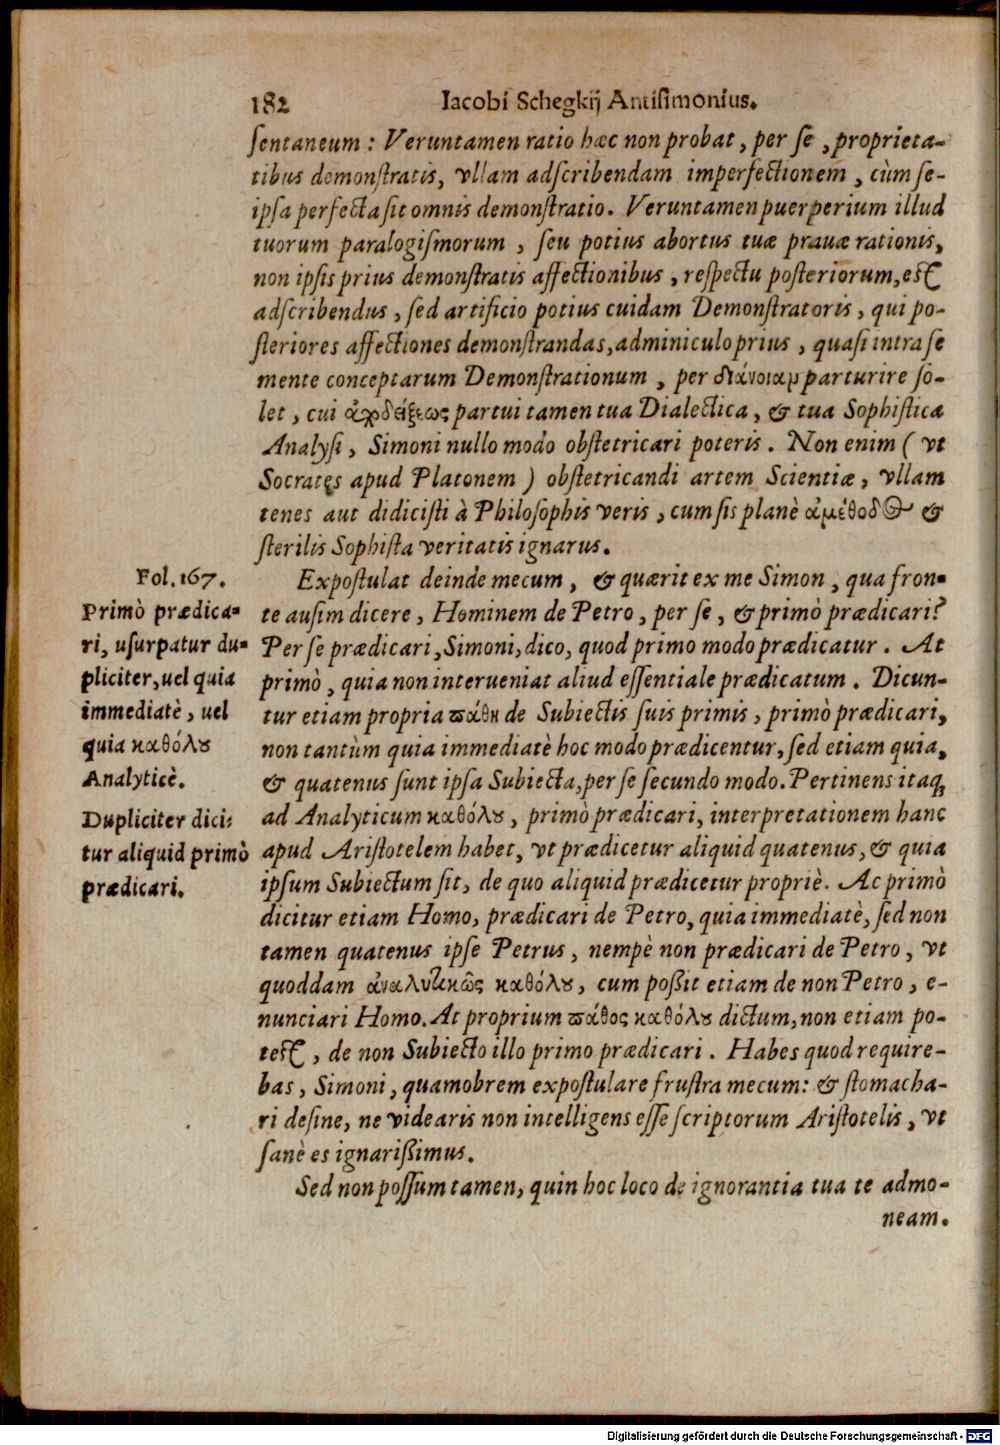 182 Iacobi Schegkij Antisimonius.
sentaneum : Veruntamen ratio hæc non probat, per se, proprieta-
tibus demonstratis, vllam adscribendam imperfectionem, cùm se-
ipsa perfecta sit omnis demonstratio. Veruntamen puerperium illud
tuorum paralogismorum, seu potius abortus tuæ prauæ rationis,
non ipsis prius demonstratis affectionibus, respectu posteriorum, est
adscribendus, sed artificio potius cuidam Demonstratoris, qui po-
steriores affectiones demonstrandas, adminiculo prius, quasi intra se
mente conceptarum Demonstrationum, per διάνοιαμ parturire so-
let, cui ἀποδείξεως partui tamen tua Dialectica, & tua Sophistica
Analysi, Simoni nullo modo obstetricari poteris. Non enim ( vt
Socrates apud Platonem ) obstetricandi artem Scientiæ, vllam
tenes aut didicisti à Philosophis veris, cum sis planè ἀμέθοδος &
sterilis Sophista veritatis ignarus.
Fol. 167.
Primò prædica-
ri, usurpatur du-
pliciter, uel quia
immediatè, uel
quia καθόλου
Analyticè.
Dupliciter dici-
tur aliquid primò
prædicari.
Expostulat deinde mecum, & quærit ex me Simon, qua fron-
te ausim dicere, Hominem de Petro, per se, & primò prædicari?
Per se prædicari, Simoni, dico, quod primo modo prædicatur. At
primò, quia non interueniat aliud essentiale prædicatum. Dicun-
tur etiam propria πάθη de Subiectis suis primis, primò prædicari,
non tantùm quia immediatè hoc modo prædicentur, sed etiam quia,
& quatenus sunt ipsa Subiecta, per se secundo modo. Pertinens itaq;
ad Analyticum καθόλου, primò prædicari, interpretationem hanc
apud Aristotelem habet, vt prædicetur aliquid quatenus, & quia
ipsum Subiectum sit, de quo aliquid prædicetur propriè. Ac primò
dicitur etiam Homo, prædicari de Petro, quia immediatè, sed non
tamen quatenus ipse Petrus, nempè non prædicari de Petro, vt
quoddam ἀναλυτικῶς καθόλου, cum poßit etiam de non Petro, e-
nunciari Homo. At proprium πάθος καθόλου dictum, non etiam po-
test, de non Subiecto illo primo prædicari. Habes quod require-
bas, Simoni, quamobrem expostulare frustra mecum: & stomacha-
ri desine, ne videaris non intelligens esse scriptorum Aristotelis, vt
sanè es ignarißimus.
Sed non possum tamen, quin hoc loco de ignorantia tua te admo-
neam.
Digitalisierung gefördert durch die Deutsche Forschungsgemeinschaft - DFG